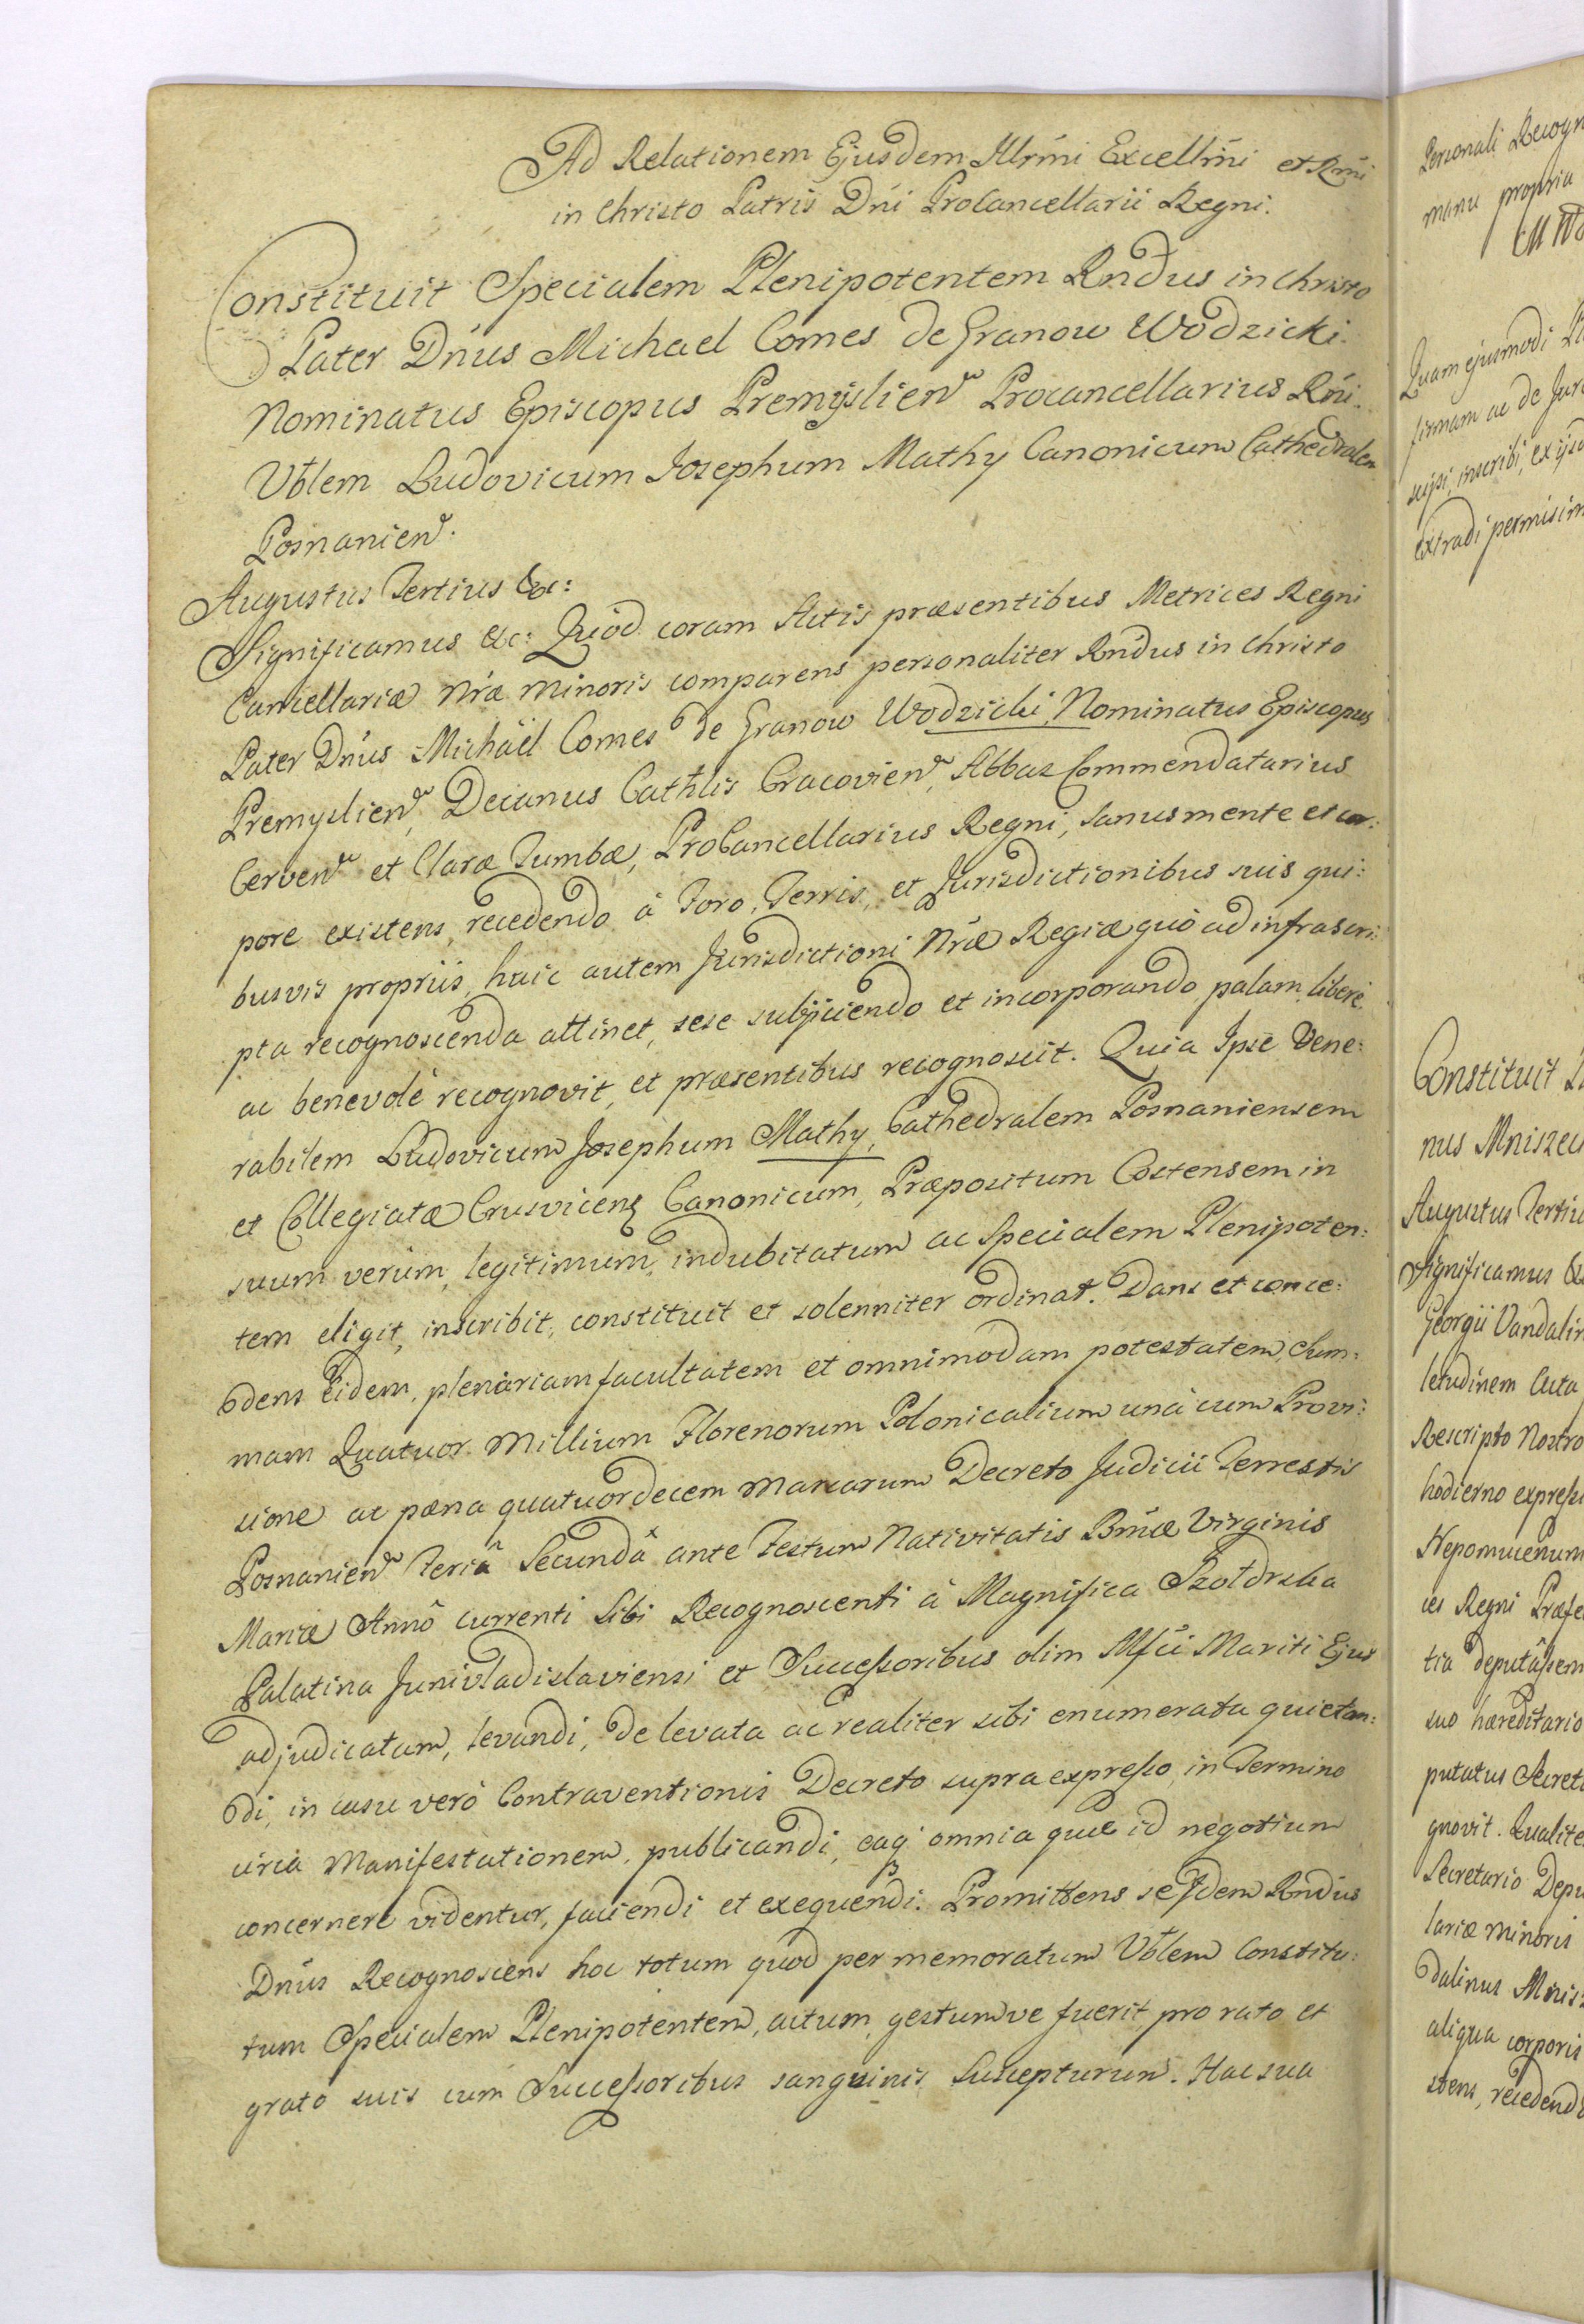 Ad Relationem Ejusdem Illrmi Excellmi et Rmi
in Christo Patris Dni ProCancellarii Regni.
Constituit Specialem Plenipotentem Rndus in Christo
Pater Dnus Michael Comes de Granow Wodzicki
Nominatus Episcopus Premyslien Procancellarius Rni.
Vblem Ludovicum Josephum Mathy Canonicum Cathedralem
Posnanien.
Augustus Tertius &c:
Significamus &c: Quod coram Actis præsentibus Metrices Regni
Cancellariæ Nræ Minoris comparens personaliter Rndus in Christo
Pater Dnus Michaël Comes de Granow Wodzicki, Nominatus Episcopus
Premyslien, Decanus Cathlis Cracovien, Abbas Commendatarius
Cerven et Claræ Tumbæ, ProCancellarius Regni, sanus mente et cor:
pore existens, recedendo à Foro, Terris, et Jurisdictionibus suis qui:
busvis propriis, huic autem Jurisdictioni Nræ Regiæ quò ad infrascri:
pta recognoscenda attinet, sese subjiciendo et incorporando palam, liberè
ac benevolè recognovit, et præsentibus recognoscit. Quia Ipse Vene:
rabilem Ludovicum Josephum Mathy, Cathedralem Posnaniensem
et Collegiatæ Crusvicens Canonicum, Præpositum Costensem in
suum verum, legitimum, indubitatum ac Specialem Plenipoten:
tem eligit, inscribit, constituit et solenniter ordinat. Dans et conce:
dens Eidem, plenariam facultatem et omnimodam potestatem, Sum:
mam Quatuor Millium Florenorum Polonicalium unà cum Provi:
sione ac pæna quatuordecem Marcarum Decreto Judicii Terrestris
Posnanien Feriâ Secundâ ante Festum Nativitatis Bmæ Virginis
Mariæ Annô currenti Sibi Recognoscenti à Magnifica Szołdrska
Palatina Junivladislaviensi et Successoribus olim Mfci Mariti Ejus
adjudicatam, levandi, de levata ac realiter sibi enumerata quietan:
di, in casu verò Contraventionis Decreto supra expresso, in Termino
circa Manifestationem, publicandi, eaq omnia quæ id negotium
concernere videntur, faciendi et exequendi. Promittens se Idem Rndus
Dnus Recognoscens hoc totum quod per memoratum Vblem Constitu:
tum Specialem Plenipotentem, actum, gestumve fuerit, pro rato et
grato suis cum Successoribus sanguinis Suscepturum. Hac sua
Personali Recogn
manu propria
Quam ejusmodi
firmam ac de Jur
scipi, inscribi, ex ijsd
extradi permisim
Constituit
nus Mniszec
Augustus Tertiu
Significamus
Georgii Vandalin
letudinem Acta
Rescripto Nostro
hodierno express
Nepomucenum
ces Regni Præfe
tia deputâssem
suo hæreditario
putatus Secret
gnovit. Qualite
Secretario Depu
lariæ Minoris
dalinus Mnis
aliqua corporis
stens, recedend